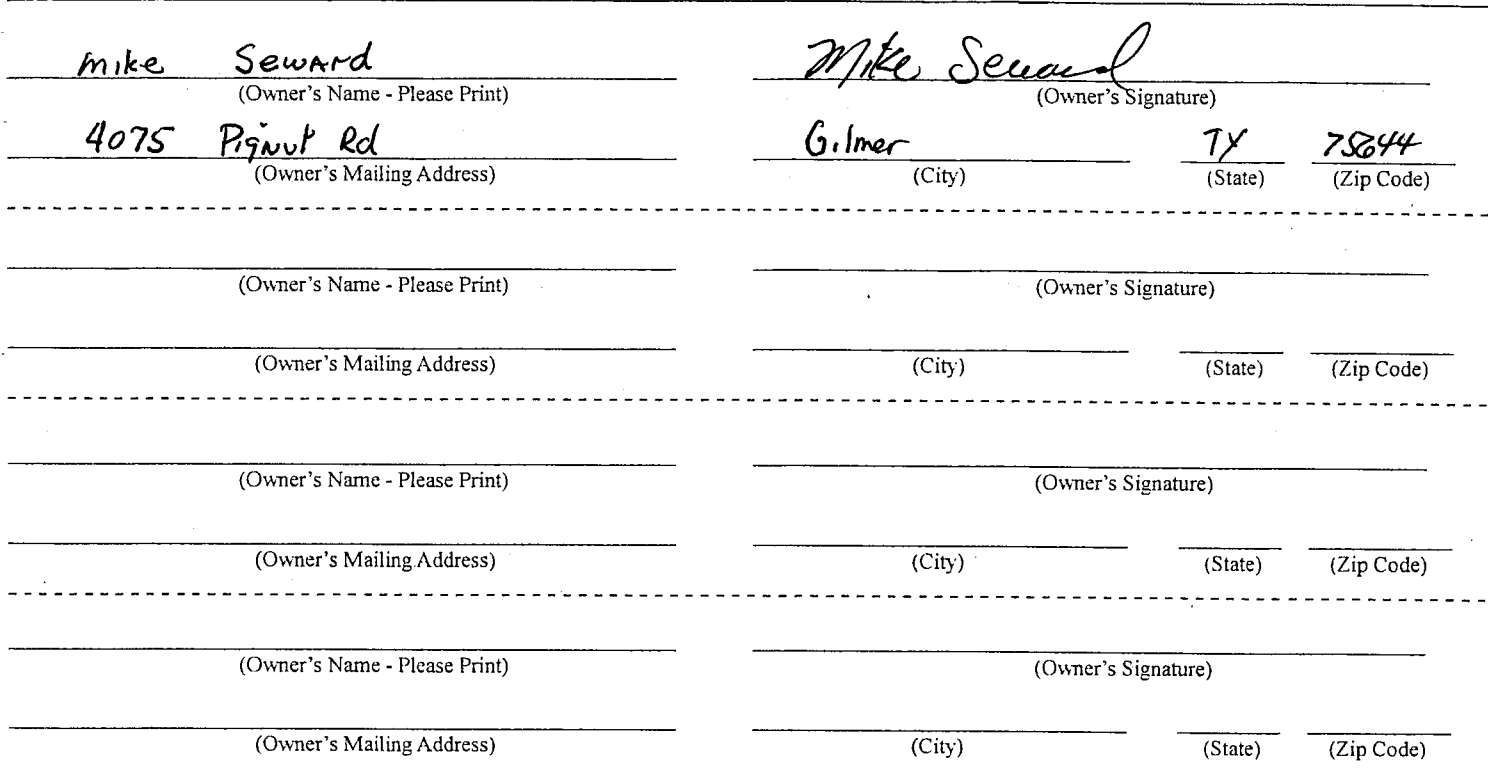 mike Seward Mike Seward
(Owner's Name - Please Print) (Owner's Signature)
4075 Pignut Rd Gilmer TX 75644
(Owner's Mailing Address) (City) (State) (Zip Code)
(Owner's Name - Please Print) (Owner's Signature)
(Owner's Mailing Address) (City) (State) (Zip Code)
(Owner's Name - Please Print) (Owner's Signature)
(Owner's Mailing Address) (City) (State) (Zip Code)
(Owner's Name - Please Print) (Owner's Signature)
(Owner's Mailing Address) (City) (State) (Zip Code)